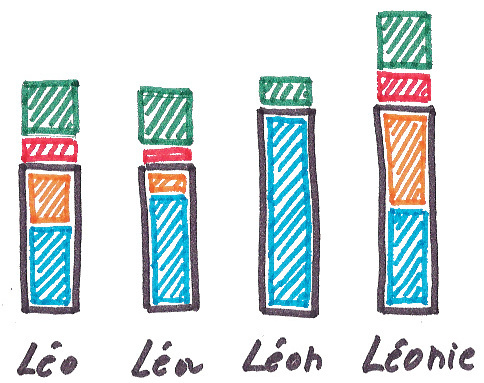 Léo Léa Léon Léonie